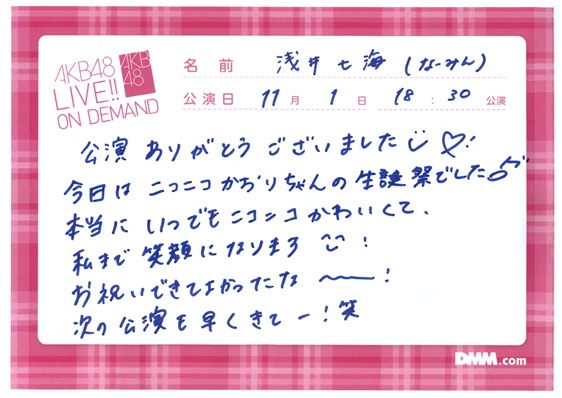 AKB48
LIVE!!
ON DEMAND
AKB
48
名前 浅井七海 (なーみん)
公演日 11月1日 18:30公演
公演ありがとうございました!
今日はニコニコかおりちゃんの生誕祭でした♪
本当にいつでもニコニコかわいくて、
私まで笑顔になりまる !
お祝いできてよかったな〜!
次の公演も早くきてー!笑
DMM.com